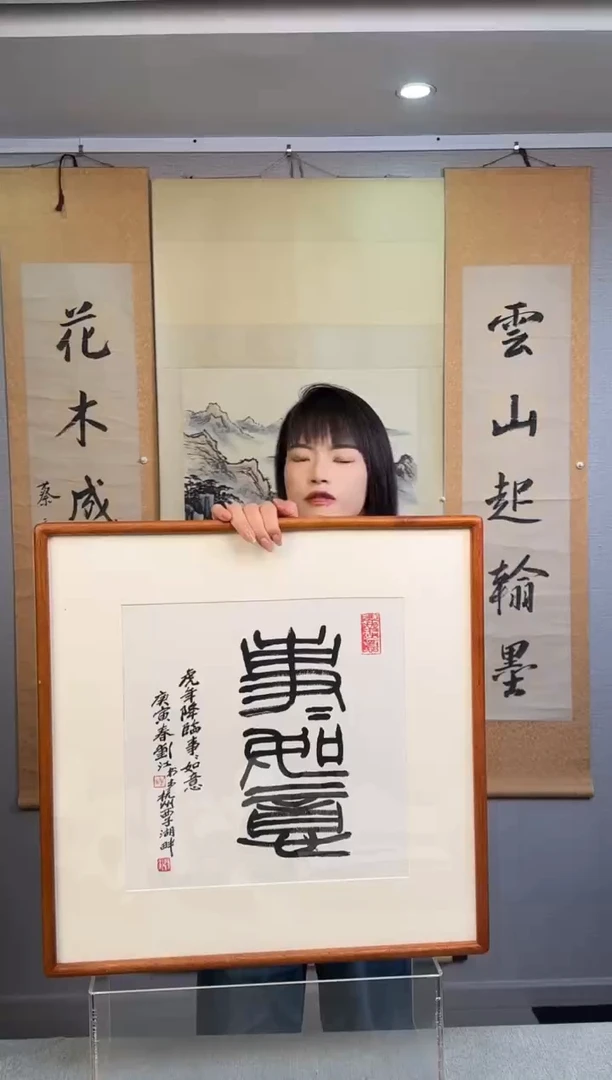 雲山起翰墨
花木成
蔡
事〻如意
虎年降臨事〻如意
庚寅春劉江书于杭州西子湖畔